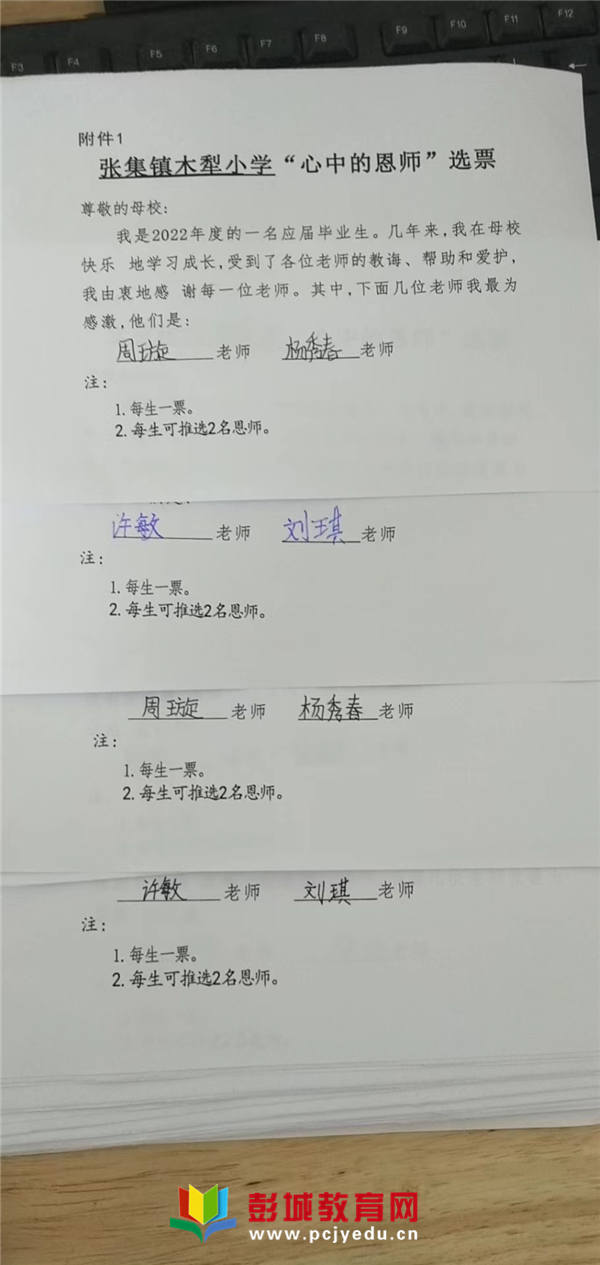 F3 F4 F5 F6 F7 F8 F9 F10 F11 F12
附件1
张集镇木犁小学“心中的恩师”选票
尊敬的母校：
我是2022年度的一名应届毕业生。几年来，我在母校
快乐 地学习成长，受到了各位老师的教诲、帮助和爱护，
我由衷地感 谢每一位老师。其中，下面几位老师我最为
感激，他们是：
周璇 老师 杨秀春 老师
注：
1. 每生一票。
2. 每生可推选2名恩师。
许敏 老师 刘琪 老师
注：
1. 每生一票。
2. 每生可推选2名恩师。
周璇 老师 杨秀春 老师
注：
1. 每生一票。
2. 每生可推选2名恩师。
许敏 老师 刘琪 老师
注：
1. 每生一票。
2. 每生可推选2名恩师。
彭城教育网
www.pcjyedu.cn